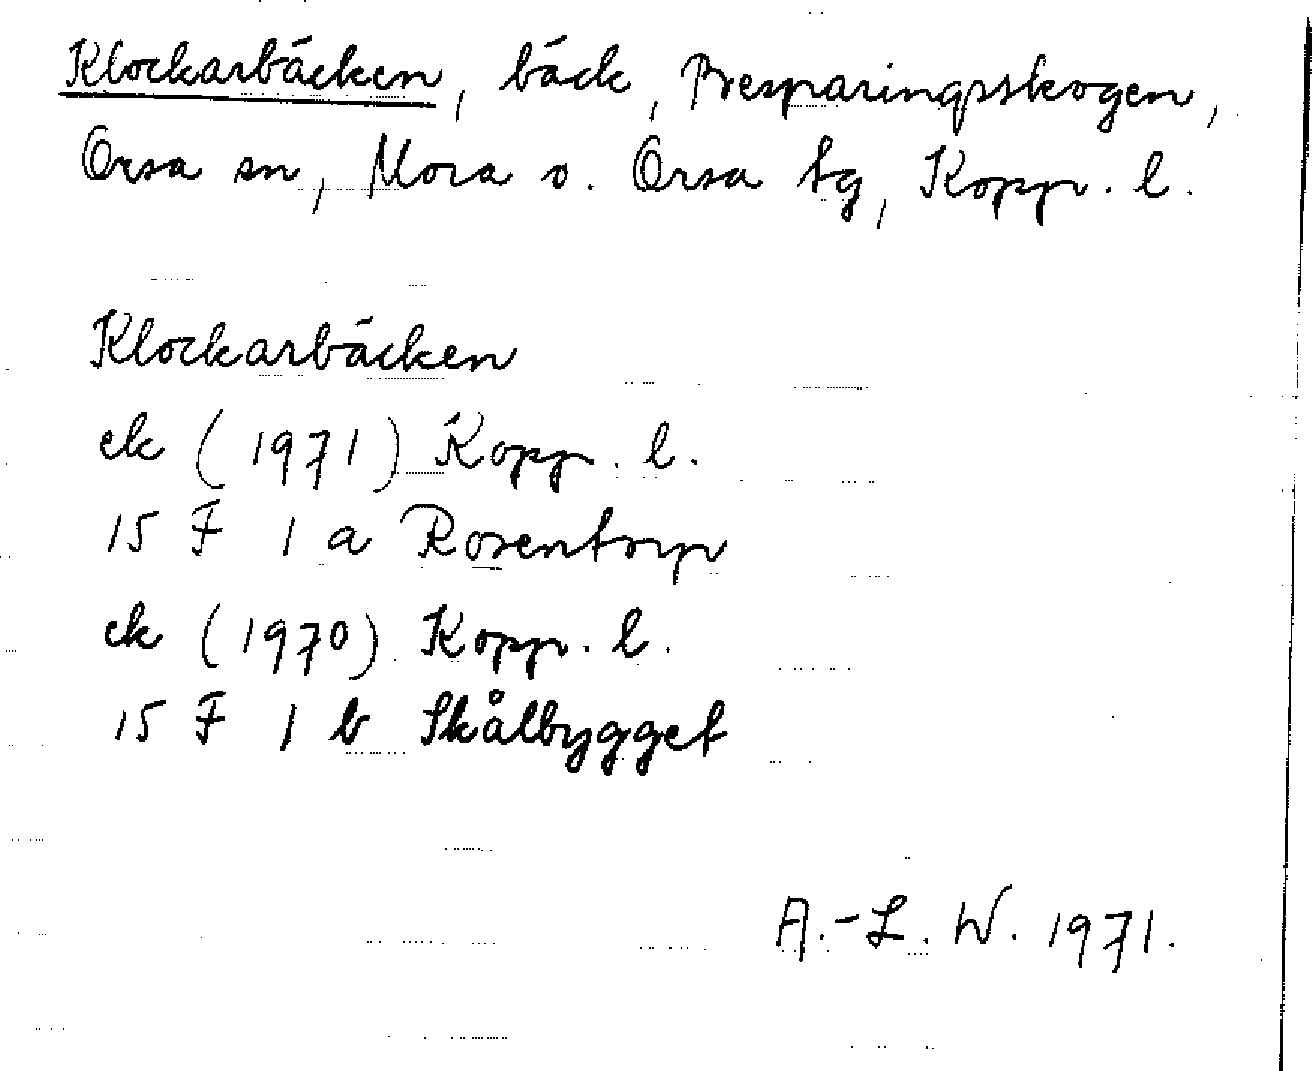 Klockarbäcken, bäck, Besparingsskogen,
Orsa sn, Mora o. Orsa tg, Kopp. l.
Klockarbäcken
ek (1971) Kopp. l.
15 F 1 a Rosentorp
ek (1970) Kopp. l.
15 F 1 b Skålbygget
A.-L. W. 1971.